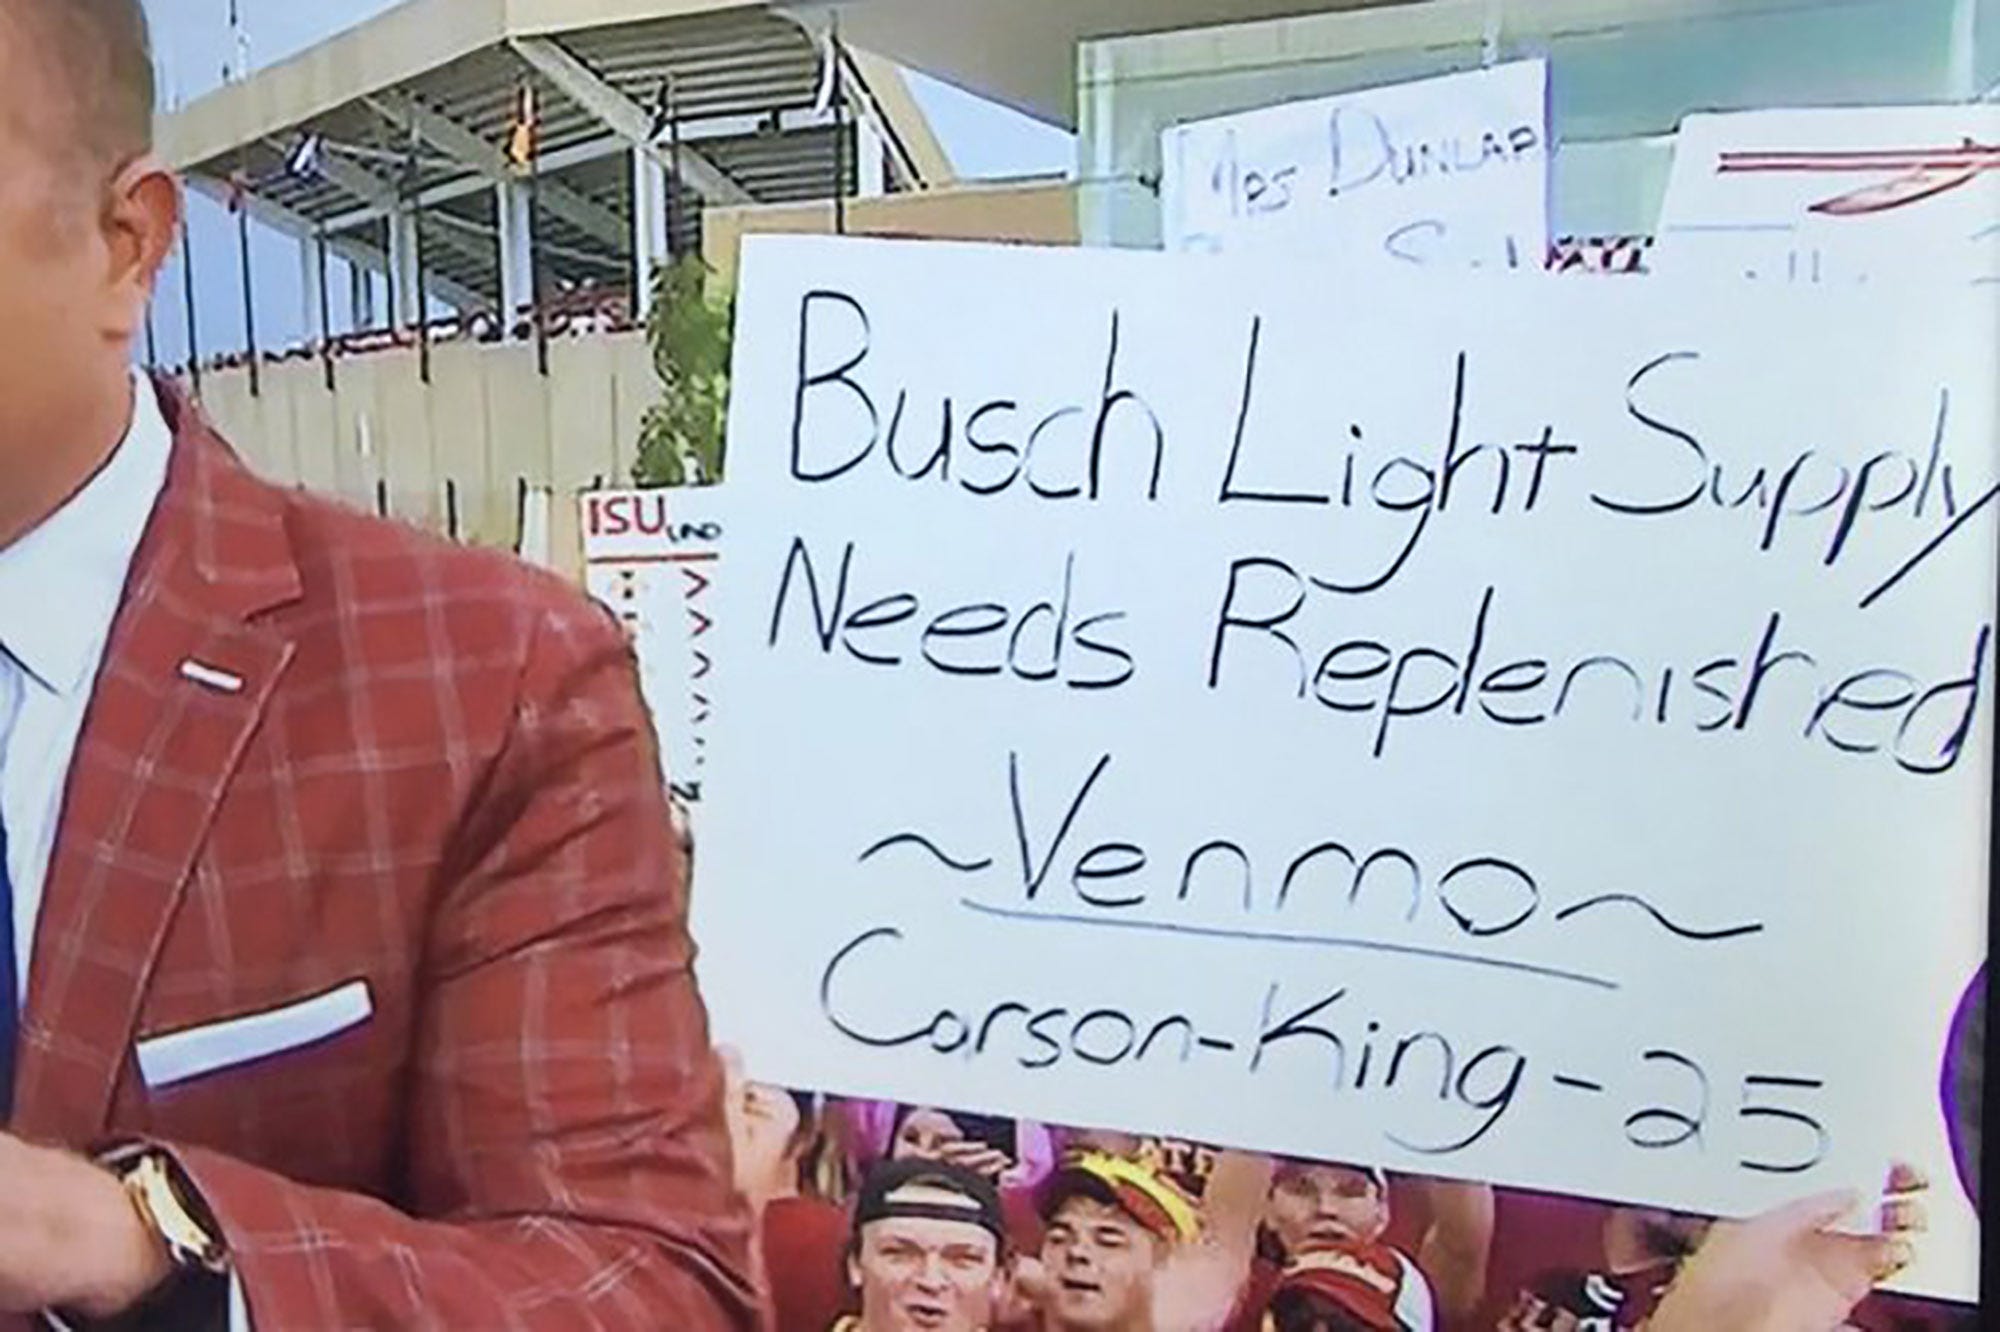 Mrs Dunlap
Busch Light Supply
Needs Replenished
~Venmo~
Carson-King-25
ISU